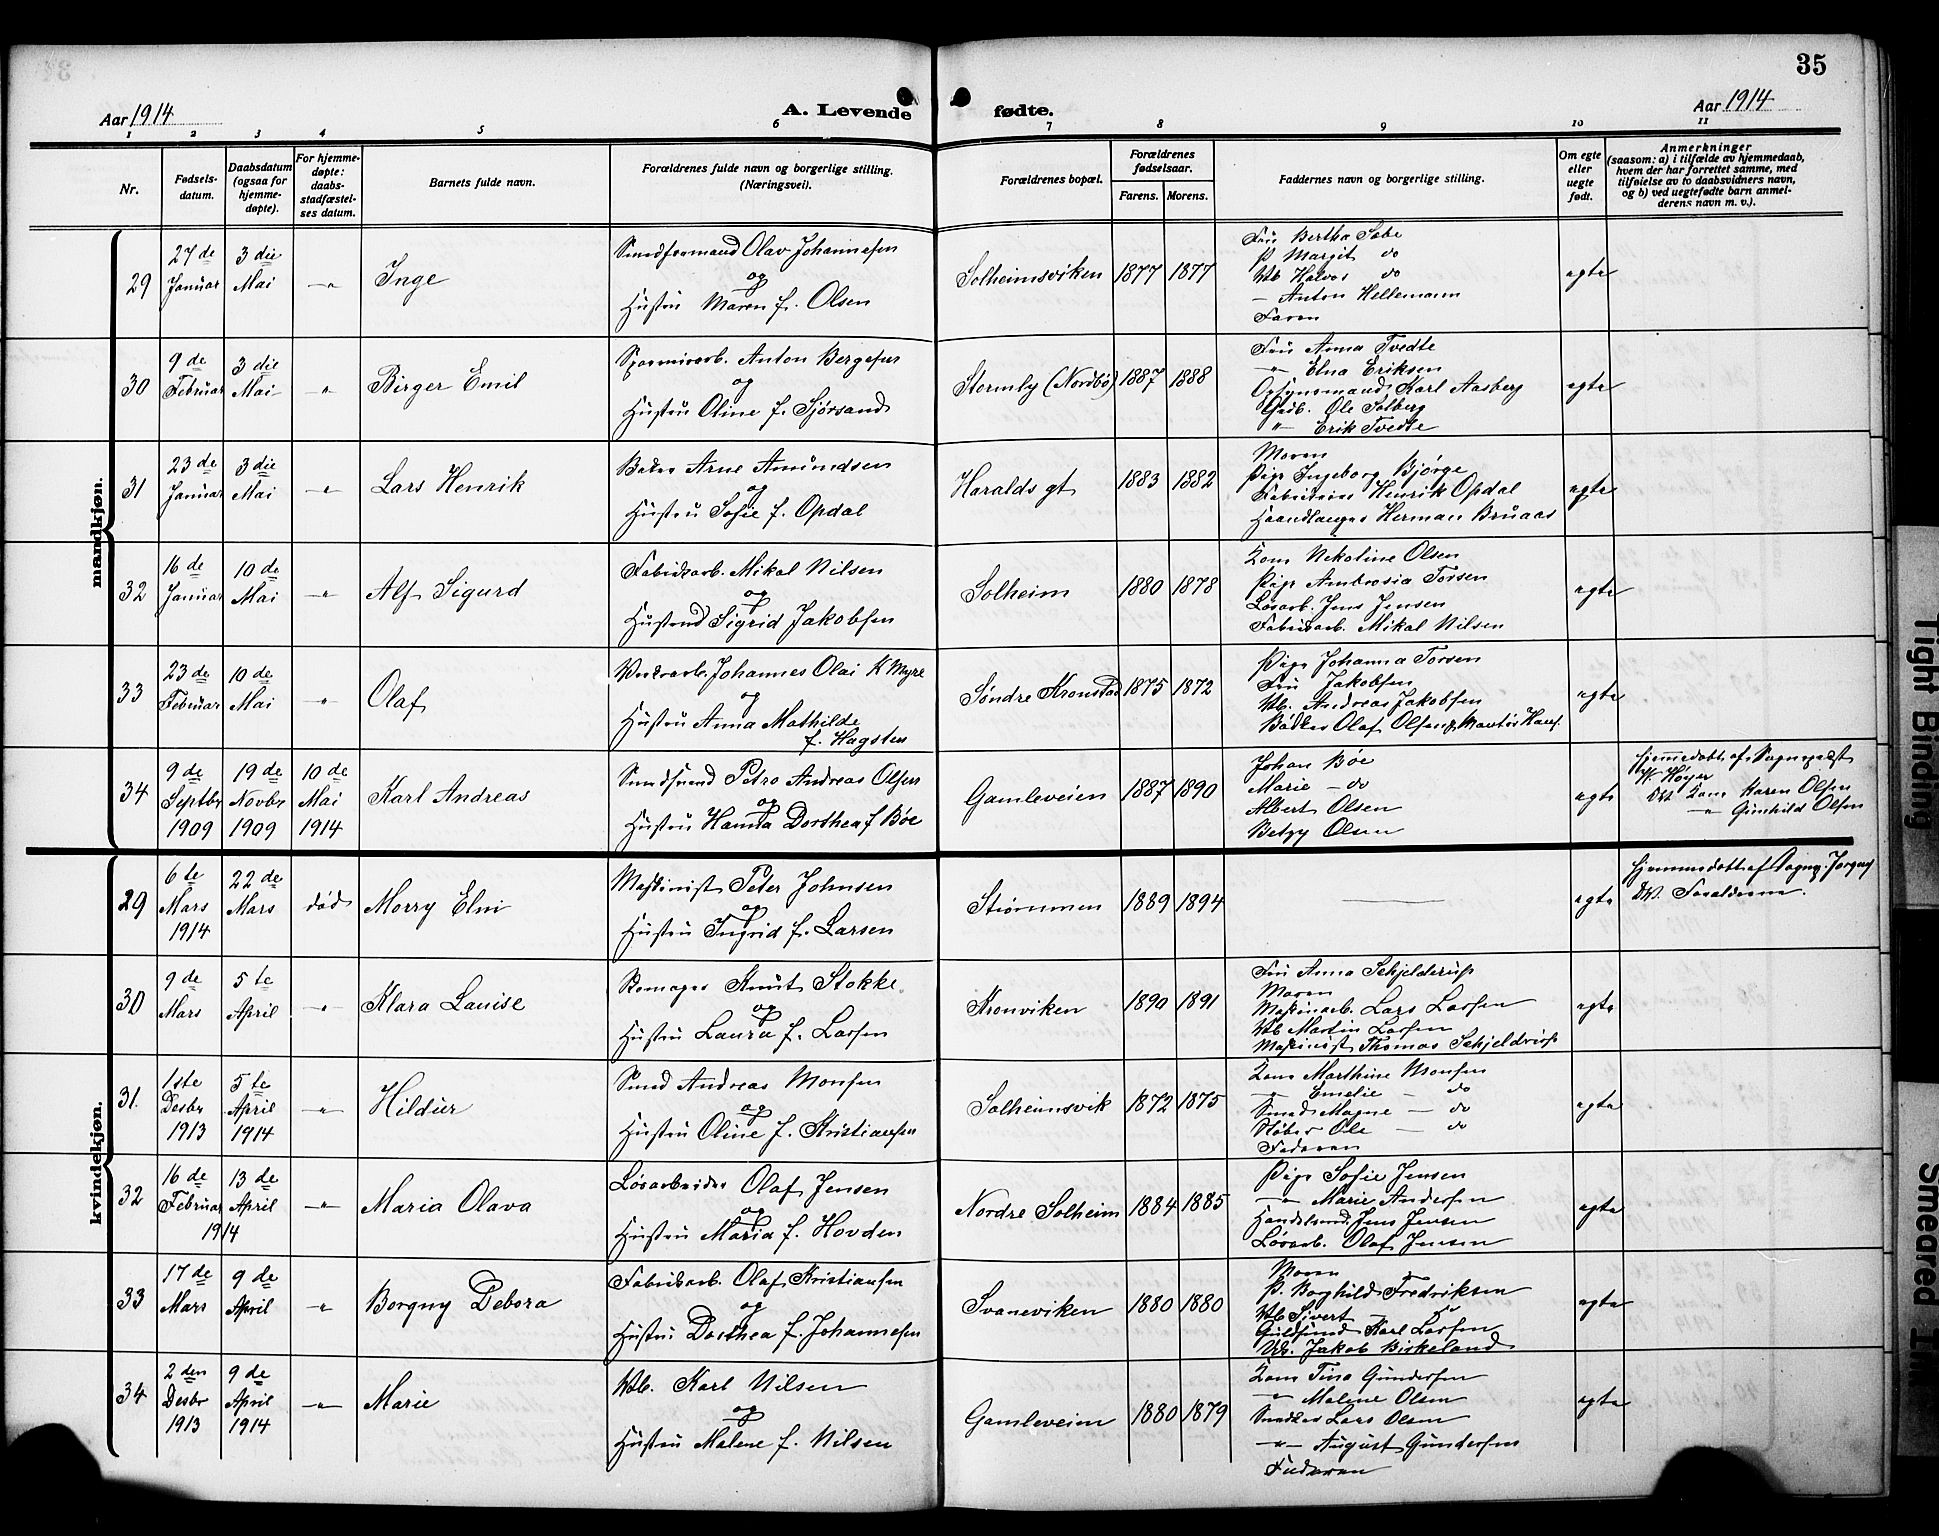 35
Aar 1914
A. Levende
fødte.
Aar 1914
1 2 3 4 5 6 7 8 9 10 11
Nr.
Fødsels-
datum.
Daabsdatum
(ogsaa for
hjemme-
døpte).
For hjemme-
døpte:
daabs-
stadfæstel-
ses datum.
Barnets fulde navn.
Forældrenes fulde navn og borgerlige stilling.
(Næringsvei).
Forældrenes bopæl.
Forældrenes
fødselsaar.
Farens. Morens.
Faddernes navn og borgerlige stilling.
Om egte
eller
uegte
født.
Anmerkninger
(saasom: a) i tilfælde av hjemmedaab,
hvem der har forrettet samme, med
tilføielse av to daabsvidners navn,
og b) ved uegtefødte barn anmel-
derens navn m. v.).
mandkjøn.
29
27 de
Januar
3 die
Mai
Inge
Smedformand Olav Johannesen
og
Hustru Maren f. Olsen
Solheimsviken
1877 1877
Fru Bertha Sæbe
P Margit do
Halvor do
— Anton Hellemann
Faren
egte
30
9 de
Februar
3 die
Mai
Birger Emil
Anton Bergesen
og
Hustru Oline f. Sjørsand
Stormly (Nordbø)
1887 1888
Fru Anna Tvedte
" Elna Eriksen
Opsynsmand Karl Aasberg
Ole Solberg
"— Erik Tvedte
egte
31
23 de
Januar
3 die
Mai
Lars Henrik
Arne Amundsen
og
Hustru Sofie f. Opdal
Haralds gt
1883 1882
Moren
Pige Ingeborg Bjørge
Henrik Opdal
Haandlanger Herman Bruaas
egte
32
16 de
Januar
10 de
Mai
Alf Sigurd
Fabrikarb. Mikal Nilsen
og
Hustru Sigrid Jakobsen
Solheim
1880 1878
Kone Nekoline Olsen
Pige Ambrosia Torsen
Løsarb. Jens Jensen
Fabrikarb. Mikal Nilsen
egte
33
23 de
Februar
10 de
Mai
Olaf
Verksarb. Johannes Olai K Myre
og
Hustru Anna Mathilde
f. Hagsten
Søndre Kronstad
1875 1872
Pige Johanna Torsen
Fru Jakobsen
Andreas Jakobsen
Bødker Olaf Olsen
egte
34
9 de
Septbr
1909
19 de
Novbr
1909
10 de
Mai
1914
Karl Andreas
Smedsvend Petro Andreas Olsen
og
Hustru Hanna Dorthea f Bøe
Gamleveien
1887 1890
Johan Bøe
Marie — do
Albert Olsen
Betzy Olsen
egte
Hjemmedøbt af Sogneprest
Høyer
Kone Karen Olsen
—"— Gunhild Olsen
kvindekjøn.
29
6 te
Mars
1914
22 de
Mars
død
Morry Elvi
Maskinist Peter Johnsen
og
Hustru Ingrid f. Larsen
Strømmen
1889 1894
egte
Hjemmedøbt af
Forældrene.
30
9 de
Mars
5 te
April
Klara Lauise
Knut Stokke
og
Hustru Laura f. Larsen
Kronviken
1890 1891
Fru Anna Schjelderup
Moren
Maskinarb. Lars Larsen
Martin Larsen
Maskinist Thomas Schjeldrup
egte
31.
1ste
Desbr
1913
5 te
April
1914
Hildur
Smed Andreas Monsen
og
Hustru Oline f. Kristiansen
Solheimsvik
1872 1875
Kone Marthine Monsen
—"— Emelie — do
Smed Magne — do
Støber Ole — do
Faderen
egte
32
16 de
Februar
1914
13 de
April
Maria Olava
Løsarbeider Olaf Jensen
og
Hustru Maria f. Hovden
Nordre Solheim
1884 1885
Pige Sofie Jensen
—"— Marie Andersen
Handelsmd. Jens Jensen
Løsarb. Olaf Jensen
egte
33
17 de
Mars
9 de
April
Borgny Debora
Fabrikarb. Olaf Kristiansen
og
Hustru Dorthea f. Johannesen
Svaneviken
1880 1880
Moren
P. Borghild Fredriksen
Sivert —
Guldsmed Karl Larsen
Jakob Birkeland
egte
34
2 den
Desbr
1913
9 de
April
1914
Marie
Karl Nilsen
og
Hustru Malene f. Nilsen
Gamleveien
1880 1879
Kone Tina Gundersen
—"— Malene Olsen
Lars Olsen
—"— August Gundersen
Faderen
egte
Tight Binding
Smeared